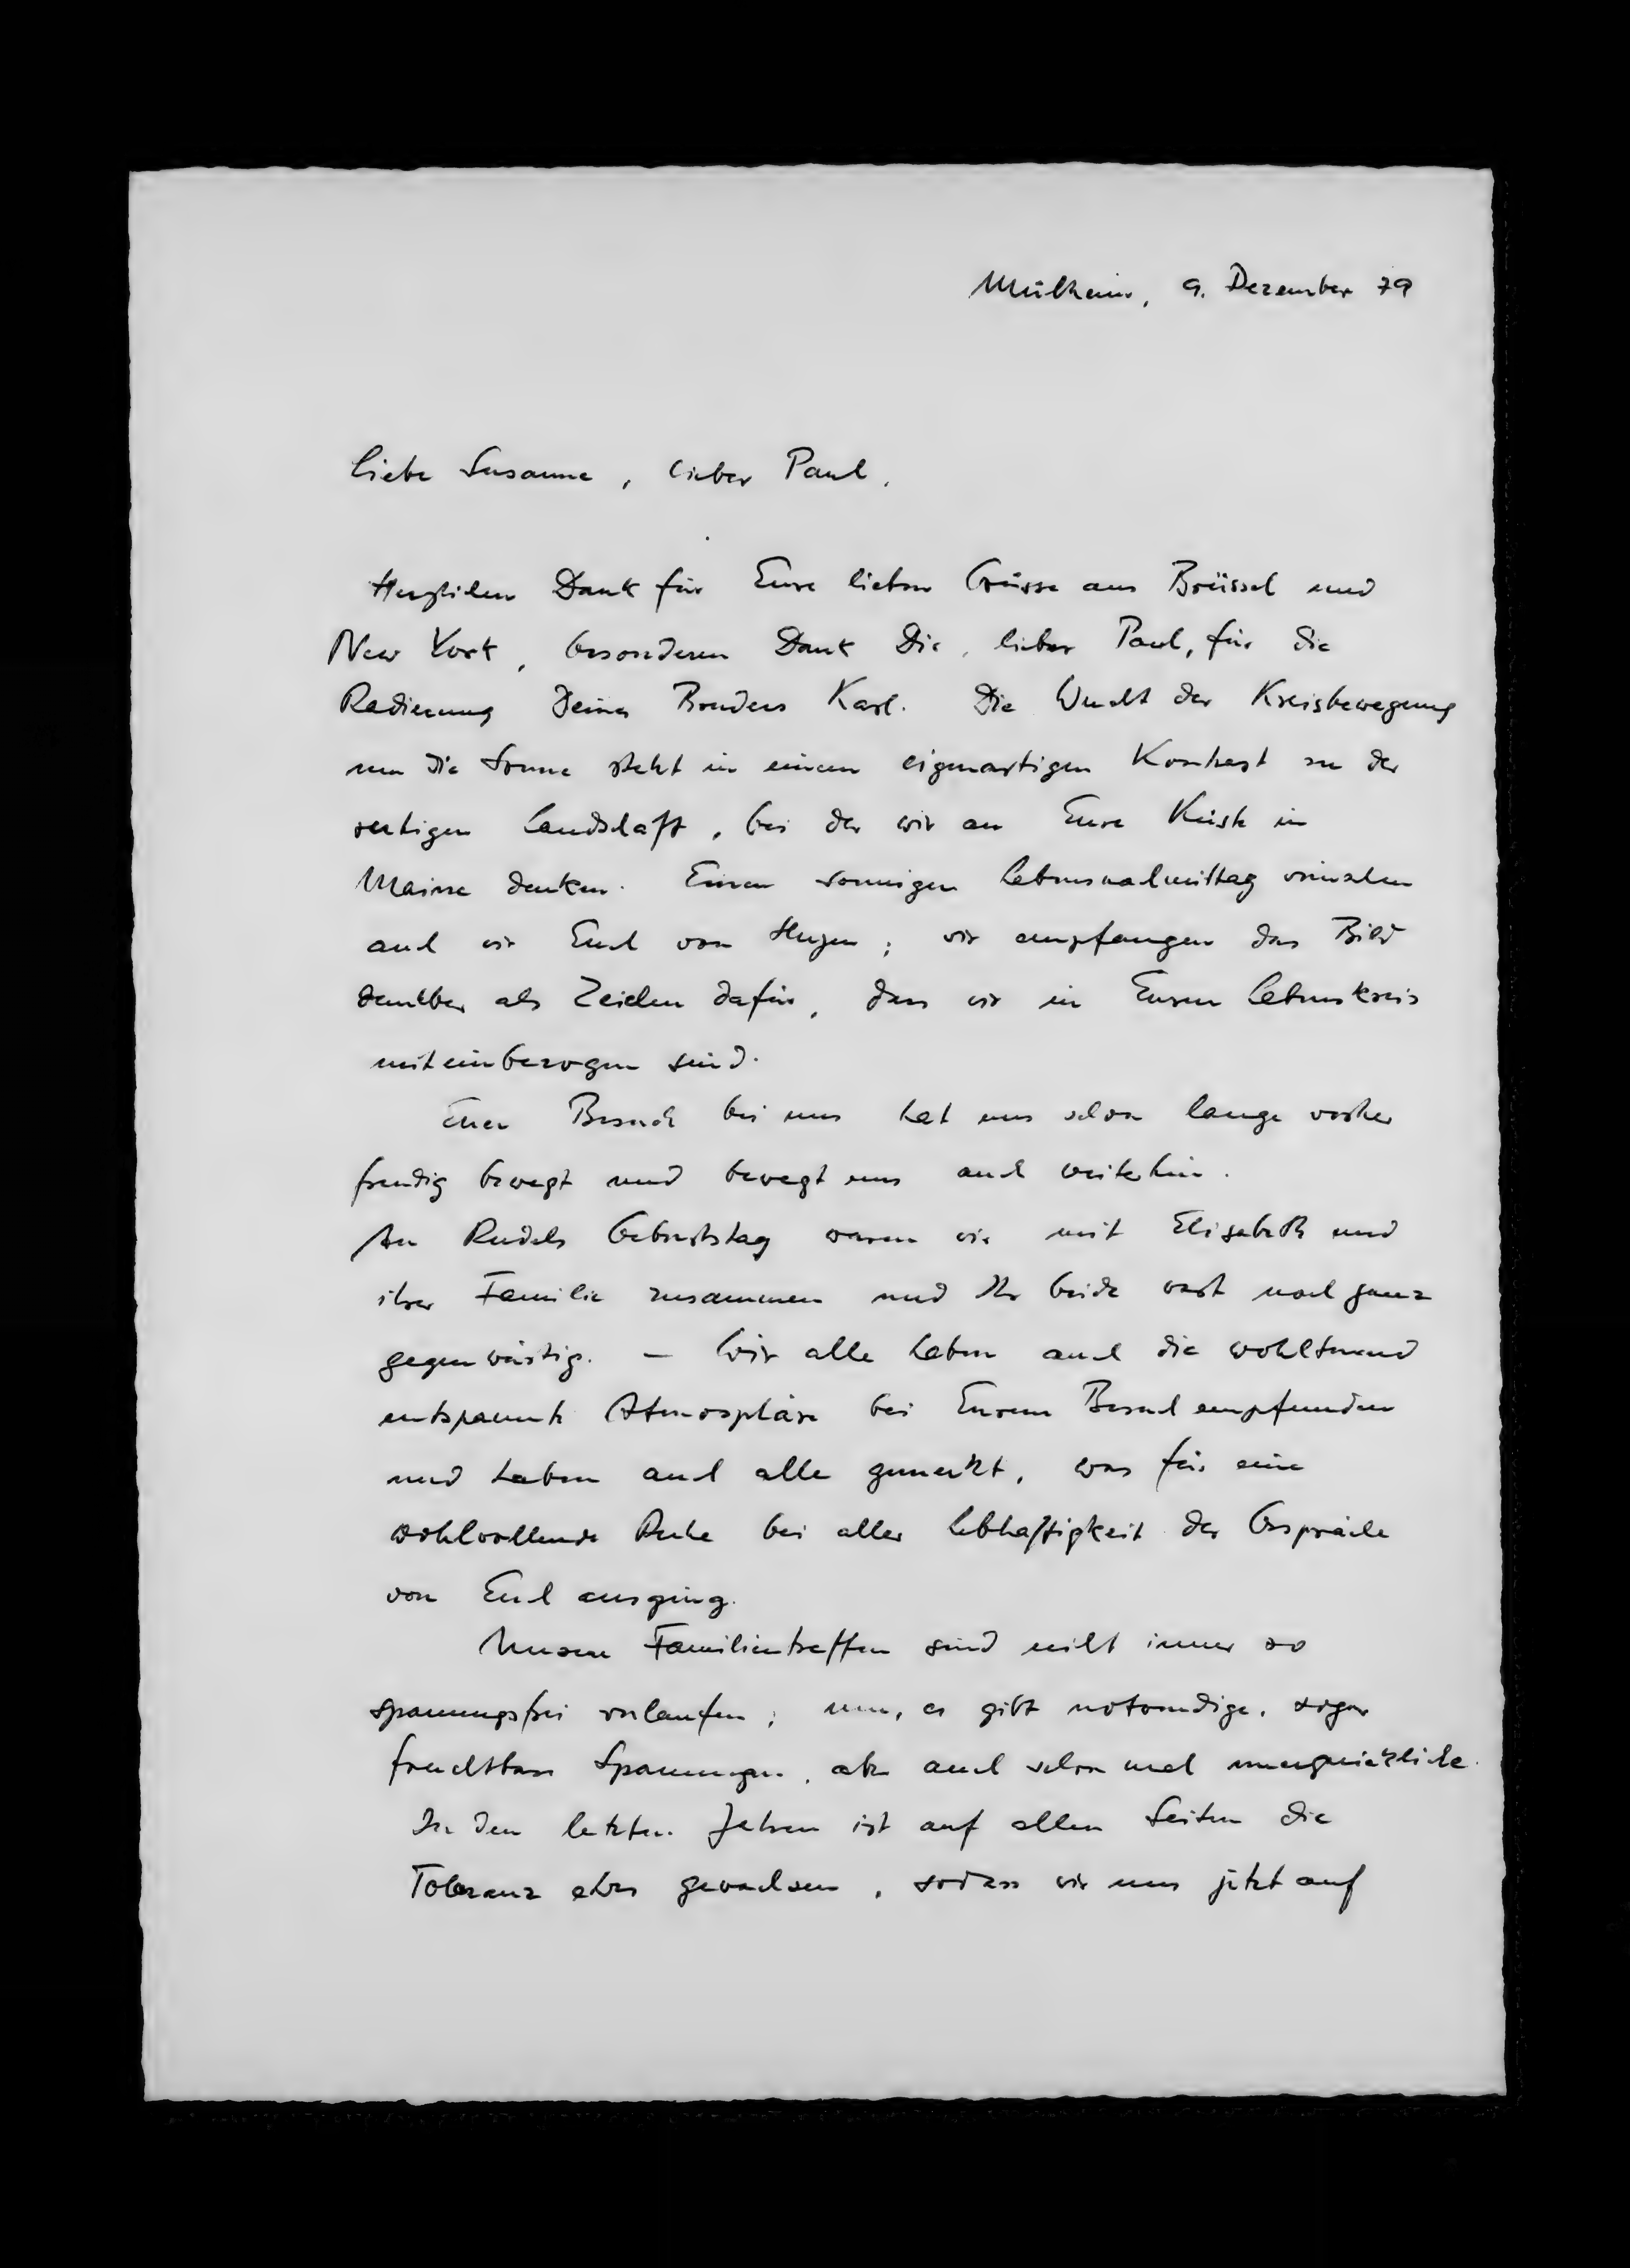 Mülheim, 9. Dezember 79
Liebe Susanne, lieber Paul,
Herzlichen Dank für Eure lieben Grüsse aus Brüssel und
New York, besonderen Dank Dir, lieber Paul, für die
Radierung Deines Bruders Karl. Die Wucht der Kreisbewegung
um die Sonne steht in einem eigenartigen Kontrast zu der
ruhigen Landschaft, bei der wir an Eure Küste in
Maine denken. Einen sonnigen Lebensnachmittag wünschen
auch wir Euch von Herzen; wir empfangen das Bild
dankbar als Zeichen dafür, dass wir in Euren Lebenskreis
miteinbezogen sind.
Euer Besuch bei uns hat uns schon lange vorher
freudig bewegt und bewegt uns auch weiterhin.
An Rudels Geburtstag waren wir mit Elisabeth und
ihrer Familie zusammen und Ihr beide wart noch ganz
gegenwärtig. – Wir alle haben auch die wohltuend
entspannte Atmosphäre bei Eurem Besuch empfunden
und haben auch alle gemerkt, was für eine
wohlwollende Ruhe bei aller Lebhaftigkeit der Gespräche
von Euch ausging.
Unsere Familientreffen sind nicht immer so
spannungsfrei verlaufen; nun, es gibt notwendige, sogar
fruchtbare Spannungen, aber auch schon mal unerquickliche.
In den letzten Jahren ist auf allen Seiten die
Toleranz etwas gewachsen, sodass wir uns jetzt auf